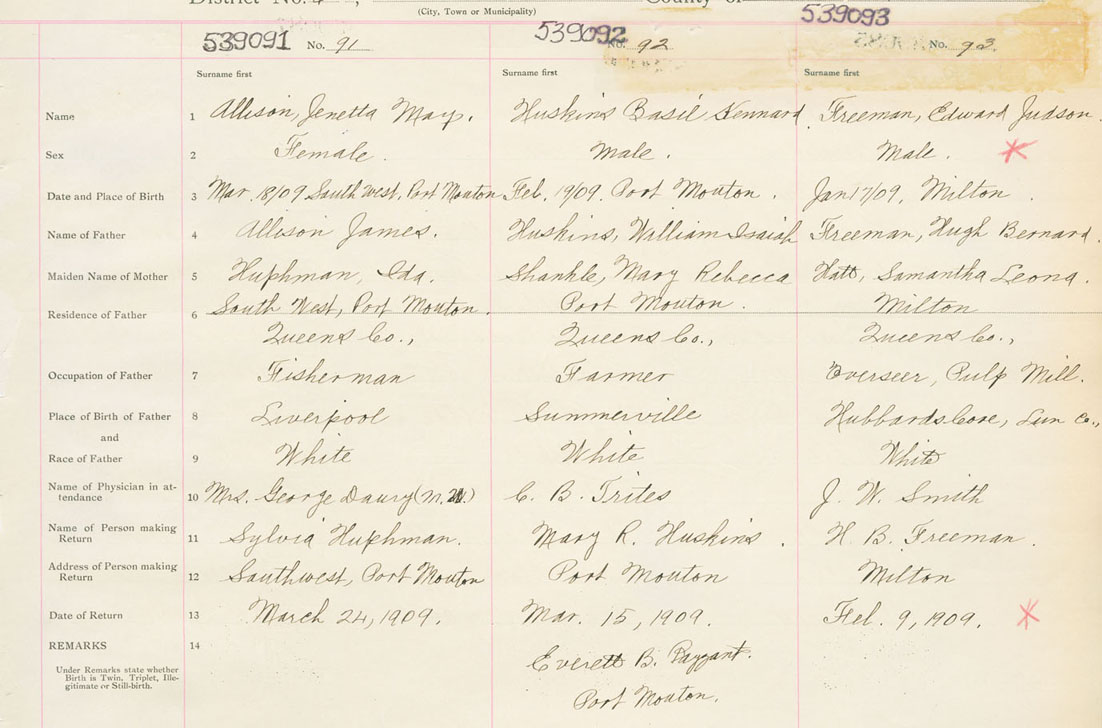 District No. 4, County of
(City, Town or Municipality)
539091 No. 91 539092 No. 92 539093 No. 93
Surname first Surname first Surname first
Name 1 Allison, Jenetta May. Huskins Basil Kennard Freeman, Edward Judson.
Sex 2 Female. Male. Male.
Date and Place of Birth 3 Mar. 18/09 South west, Port Mouton Feb. 19/09. Port Mouton. Jan 17/09, Milton.
Name of Father 4 Allison James. Huskins, William Isaiah Freeman, Hugh Bernard.
Maiden Name of Mother 5 Huphman, Ida. Shankle, Mary Rebecca Hatt, Samantha Leona.
Residence of Father 6 South West, Port Mouton. Port Mouton. Milton
Queens Co., Queens Co., Queens Co.,
Occupation of Father 7 Fisherman Farmer Overseer, Pulp Mill.
Place of Birth of Father 8 Liverpool Summerville Hubbards Cove, Lun Co.,
and
Race of Father 9 White White White
Name of Physician in at-
tendance 10 Mrs. George Daury C. B. Trites J. W. Smith
Name of Person making
Return 11 Sylvia Huphman. Mary R. Huskins. H. B. Freeman.
Address of Person making
Return 12 Southwest, Port Mouton Port Mouton Milton
Date of Return 13 March 24, 1909. Mar. 15, 1909. Feb. 9, 1909.
REMARKS 14 Everett B. Payzant.
Under Remarks state whether
Birth is Twin, Triplet, Ille-
gitimate or Still-birth.
Port Mouton.